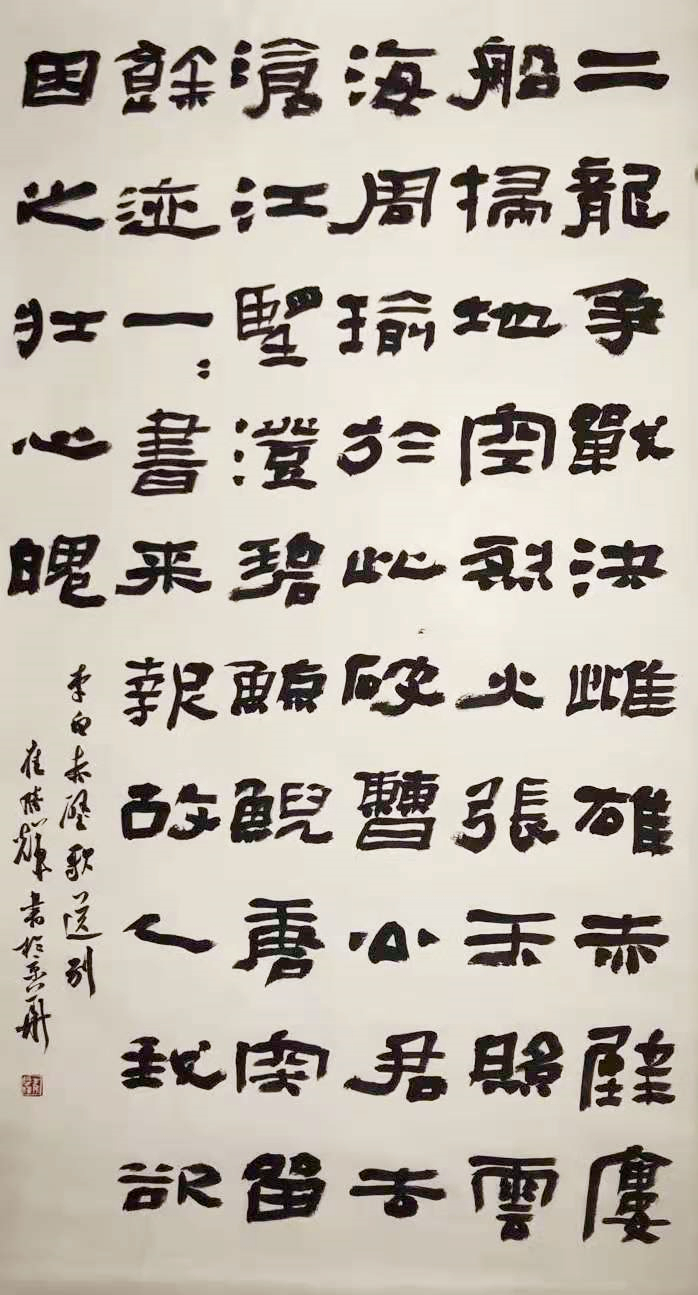 二龍争戰決雌雄赤壁廔
船掃地空烈火張天照雲
海周瑜於此破曹公君去
滄江朢澄碧鯨鯢唐突留
餘迹一：書来報故人我欲
因之壮心魄
李白赤壁歌送别
崔勝輝書於京華